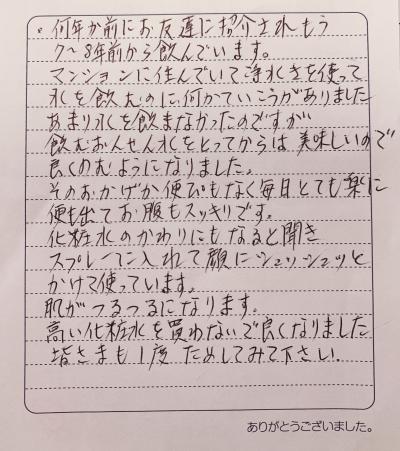 。何年か前にお友達に紹介されもう
7〜8年前から飲んでいます。
マンションに住んでいて浄水きを使って
水を飲むのに何かていこうがありました
あまり水を飲まなかったのですが
飲むおんせん水をとってからは美味しいので
良くのむようになりました。
そのおかげか便ぴもなく毎日とても楽に
便も出てお腹もスッキリです。
化粧水のかわりにもなると聞き
スプレーに入れて顔にシュッシュッと
かけて使っています。
肌がつるつるになります。
高い化粧水を買わないで良くなりました
皆さまも1度ためしてみて下さい.
ありがとうございました。